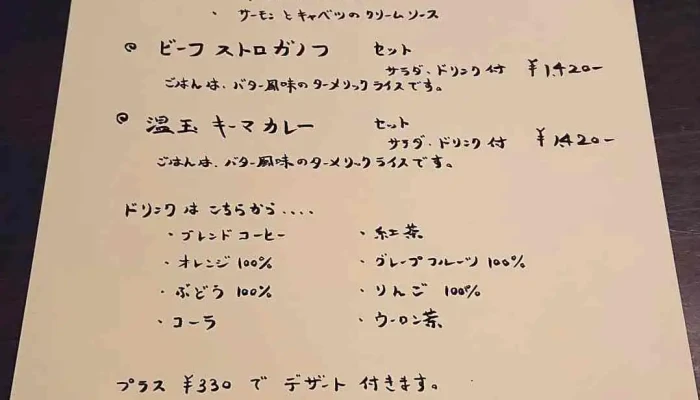 ・ サーモンとキャベツのクリームソース
◎ ビーフストロガノフ セット
サラダ・ドリンク付 ¥1,420-
ごはんは、バター風味のターメリックライスです。
◎ 温玉キーマカレー セット
サラダ・ドリンク付 ¥1,420-
ごはんは、バター風味のターメリックライスです。
ドリンクはこちらから....
・ブレンドコーヒー ・紅茶
・オレンジ100% ・グレープフルーツ100%
・ぶどう100% ・りんご100%
・コーラ ・ウーロン茶
プラス ¥330 で デザート 付きます。